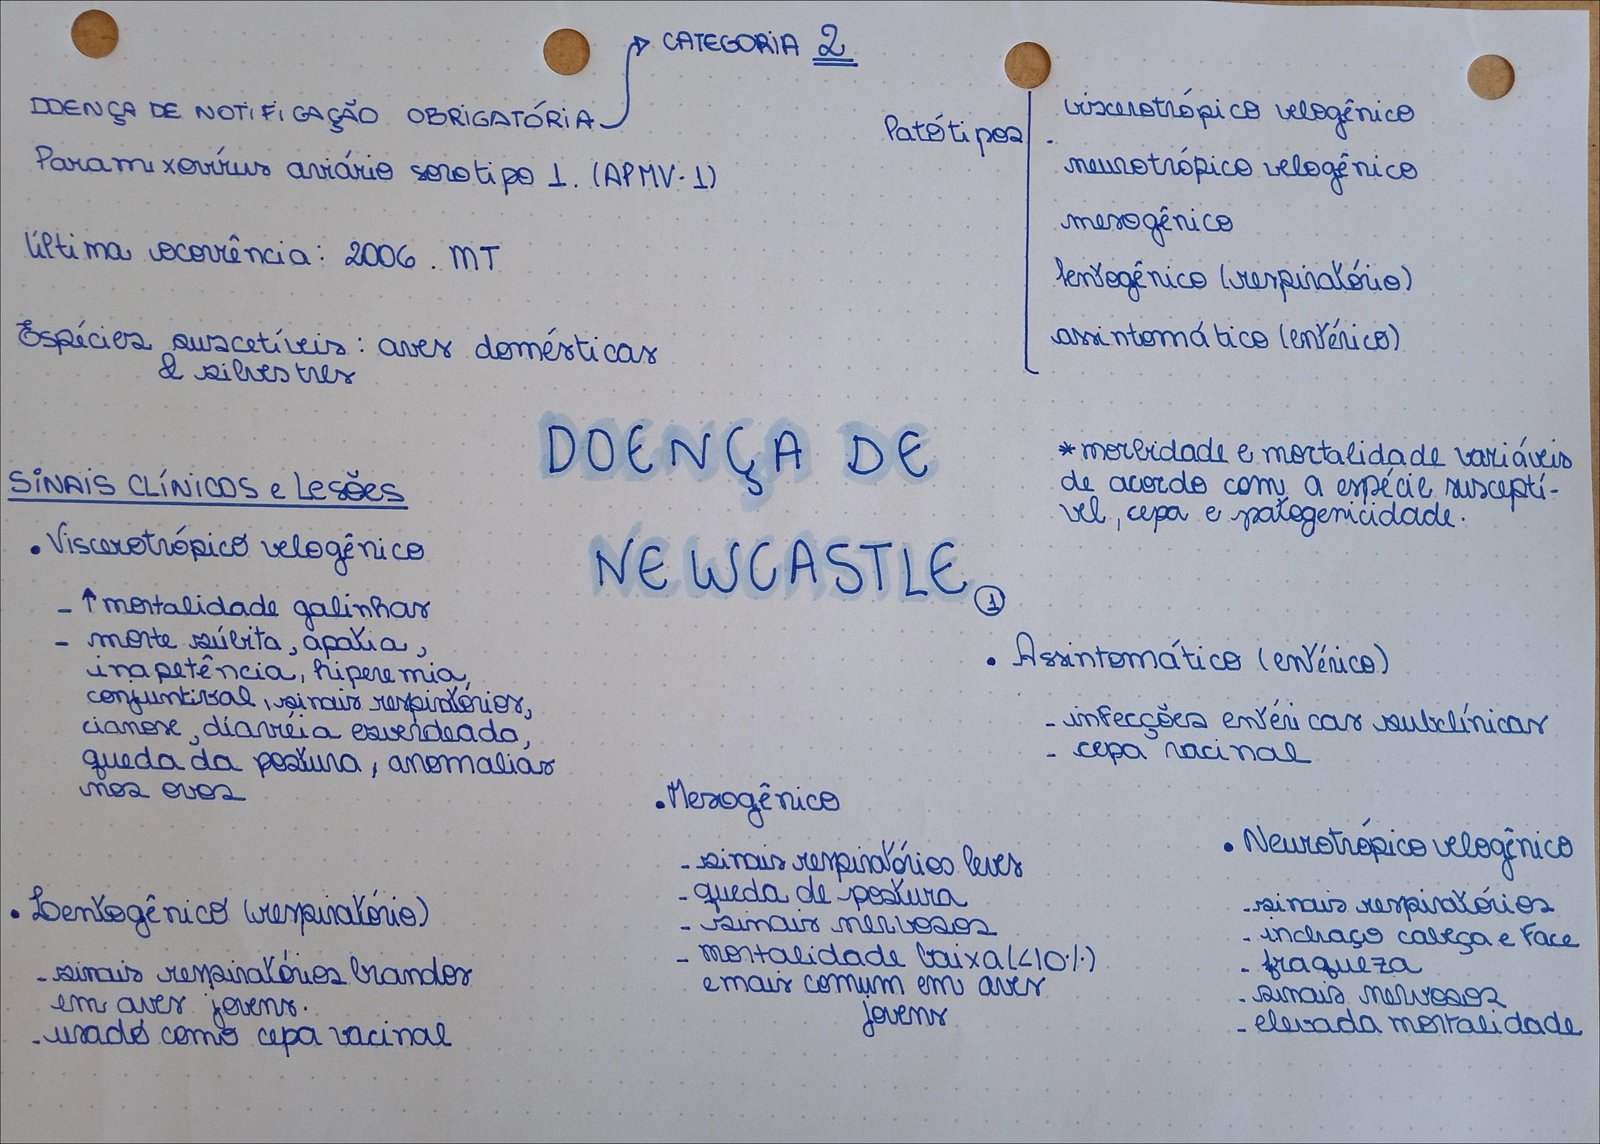 CATEGORIA 2
DOENÇA DE NOTIFICAÇÃO OBRIGATÓRIA
Paramixovírus aviário sorotipo 1. (APMV-1)
Última ocorrência: 2006. MT
Espécies suscetíveis: aves domésticas
& silvestres
Patótipos
viscerotrópico velogênico
neurotrópico velogênico
mesogênico
lentogênico (respiratório)
assintomático (entérico)
DOENÇA DE
NEWCASTLE 1
*morbidade e mortalidade variáveis
de acordo com a espécie susceptí-
vel, cepa e patogenicidade.
SINAIS CLÍNICOS e Lesões
• Viscerotrópico velogênico
- ↑ mortalidade galinhas
- morte súbita, apatia,
inapetência, hiperemia,
conjuntival, sinais respiratórios,
cianose, diarréia esverdeada,
queda da postura, anomalias
nos ovos
• Lentogênico (respiratório)
- sinais respiratórios brandos
em aves jovens.
- usado como cepa vacinal
• Mesogênico
- sinais respiratórios leves
- queda de postura
- sinais nervosos
- mortalidade baixa (<10%)
e mais comum em aves
jovens
• Assintomático (entérico)
- infecções entéricas subclínicas
- cepa vacinal
• Neurotrópico velogênico
- sinais respiratórios
- inchaço cabeça e face
- fraqueza
- sinais nervosos
- elevada mortalidade